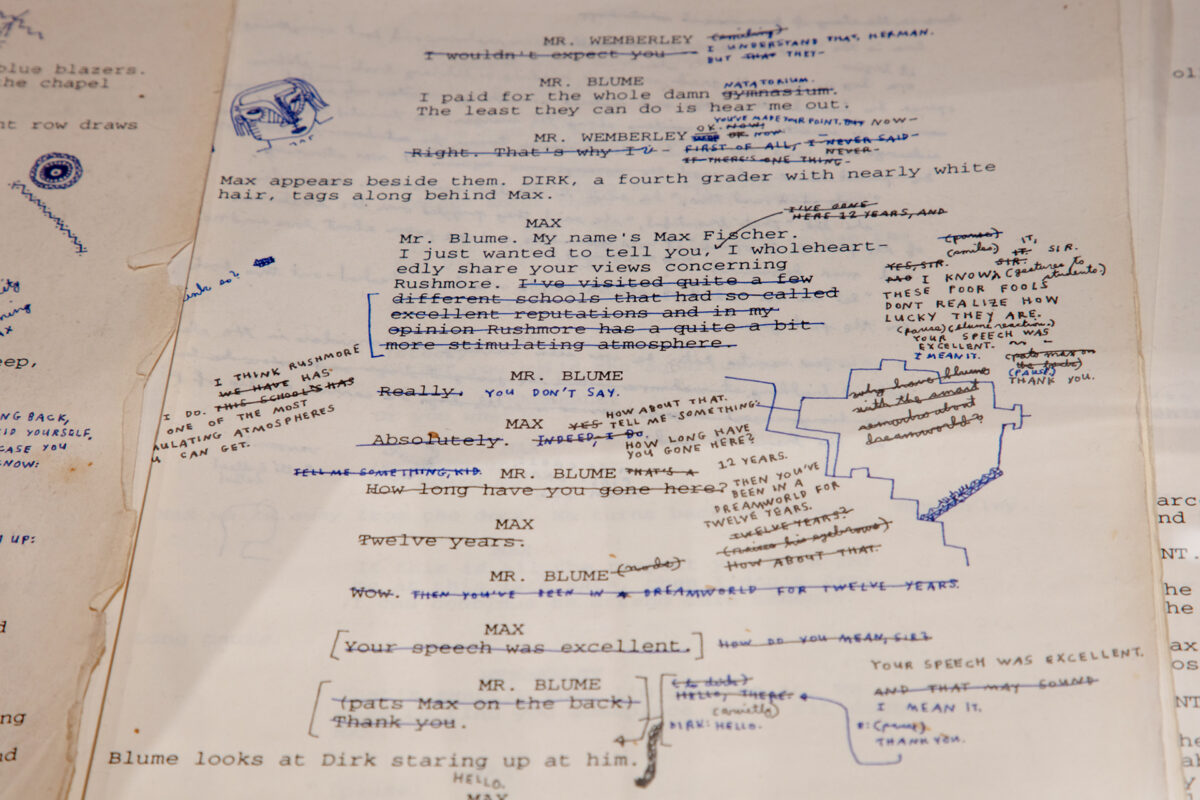 blue blazers.
the chapel
row draws
MR. WEMBERLEY (smiling)
I wouldn't expect you
I UNDERSTAND THAT, HERMAN.
BUT THAT THEY-
MR. BLUME
NATATORIUM.
I paid for the whole damn gymnasium.
The least they can do is hear me out.
YOU'VE MADE YOUR POINT, BUT NOW-
MR. WEMBERLEY
OK. NOW,
OK NOW
Right. That's why I
FIRST OF ALL, I NEVER SAID-
NEVER-
IF THERE'S ONE THING-
Max appears beside them. DIRK, a fourth grader with nearly white
hair, tags along behind Max.
I'VE GONE
HERE 12 YEARS, AND
MAX
Mr. Blume. My name's Max Fischer.
I just wanted to tell you, I wholeheart-
edly share your views concerning
Rushmore. I've visited quite a few
different schools that had so called
excellent reputations and in my
opinion Rushmore has a quite a bit
more stimulating atmosphere.
(pause) IT,
(smiles) IT. SIR.
YES, SIR. SIR.
I KNOW. (gestures to
students.)
THESE POOR FOOLS
DONT REALIZE HOW
LUCKY THEY ARE.
(pause) (blume reaction.)
YOUR SPEECH WAS
EXCELLENT.
I MEAN IT.
(pats max on
the back)
(PAUSE)
THANK YOU.
so?
I THINK RUSHMORE
WE HAVE HAS
I DO. THIS SCHOOL IS HAS
ONE OF THE MOST
ULATING ATMOSPHERES
U CAN GET.
MR. BLUME
Really. YOU DON'T SAY.
why have blume
with the smart
remarks about
dreamworld?
MAX
Absolutely. INDEED, I DO.
HOW ABOUT THAT.
YES TELL ME SOMETHING?
HOW LONG HAVE
YOU GONE HERE?
TELL ME SOMETHING, KID. MR. BLUME THAT'S A
How long have you gone here?
12 YEARS.
THEN YOU'VE
BEEN IN A
DREAMWORLD FOR
TWELVE YEARS.
TWELVE YEARS?
(raises his eyebrows)
HOW ABOUT THAT.
MAX
Twelve years.
MR. BLUME (nods)
Wow. THEN YOU'VE BEEN IN A DREAMWORLD FOR TWELVE YEARS.
MAX
[Your speech was excellent.] HOW DO YOU MEAN, SIR?
MR. BLUME
(pats Max on the back)
Thank you.
(to dirk)
HELLO, THERE.
(quietly)
DIRK: HELLO.
YOUR SPEECH WAS EXCELLENT.
AND THAT MAY SOUND
I MEAN IT.
B: (pause)
THANK YOU.
Blume looks at Dirk staring up at him.
HELLO.
MAX
ity
eep,
NG BACK,
ID YOURSELF,
CASE YOU
KNOW:
UP:
ng
arc
nd
NT.
he
he
ax
os
NT